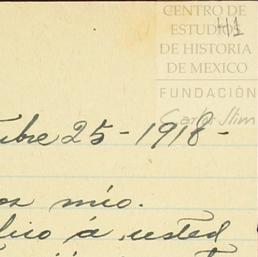 CENTRO DE
ESTUDIOS
DE HISTORIA
DE MEXICO
FUNDACIÓN
Carlos Slim
41
bre 25-1918-
mío.
á usted